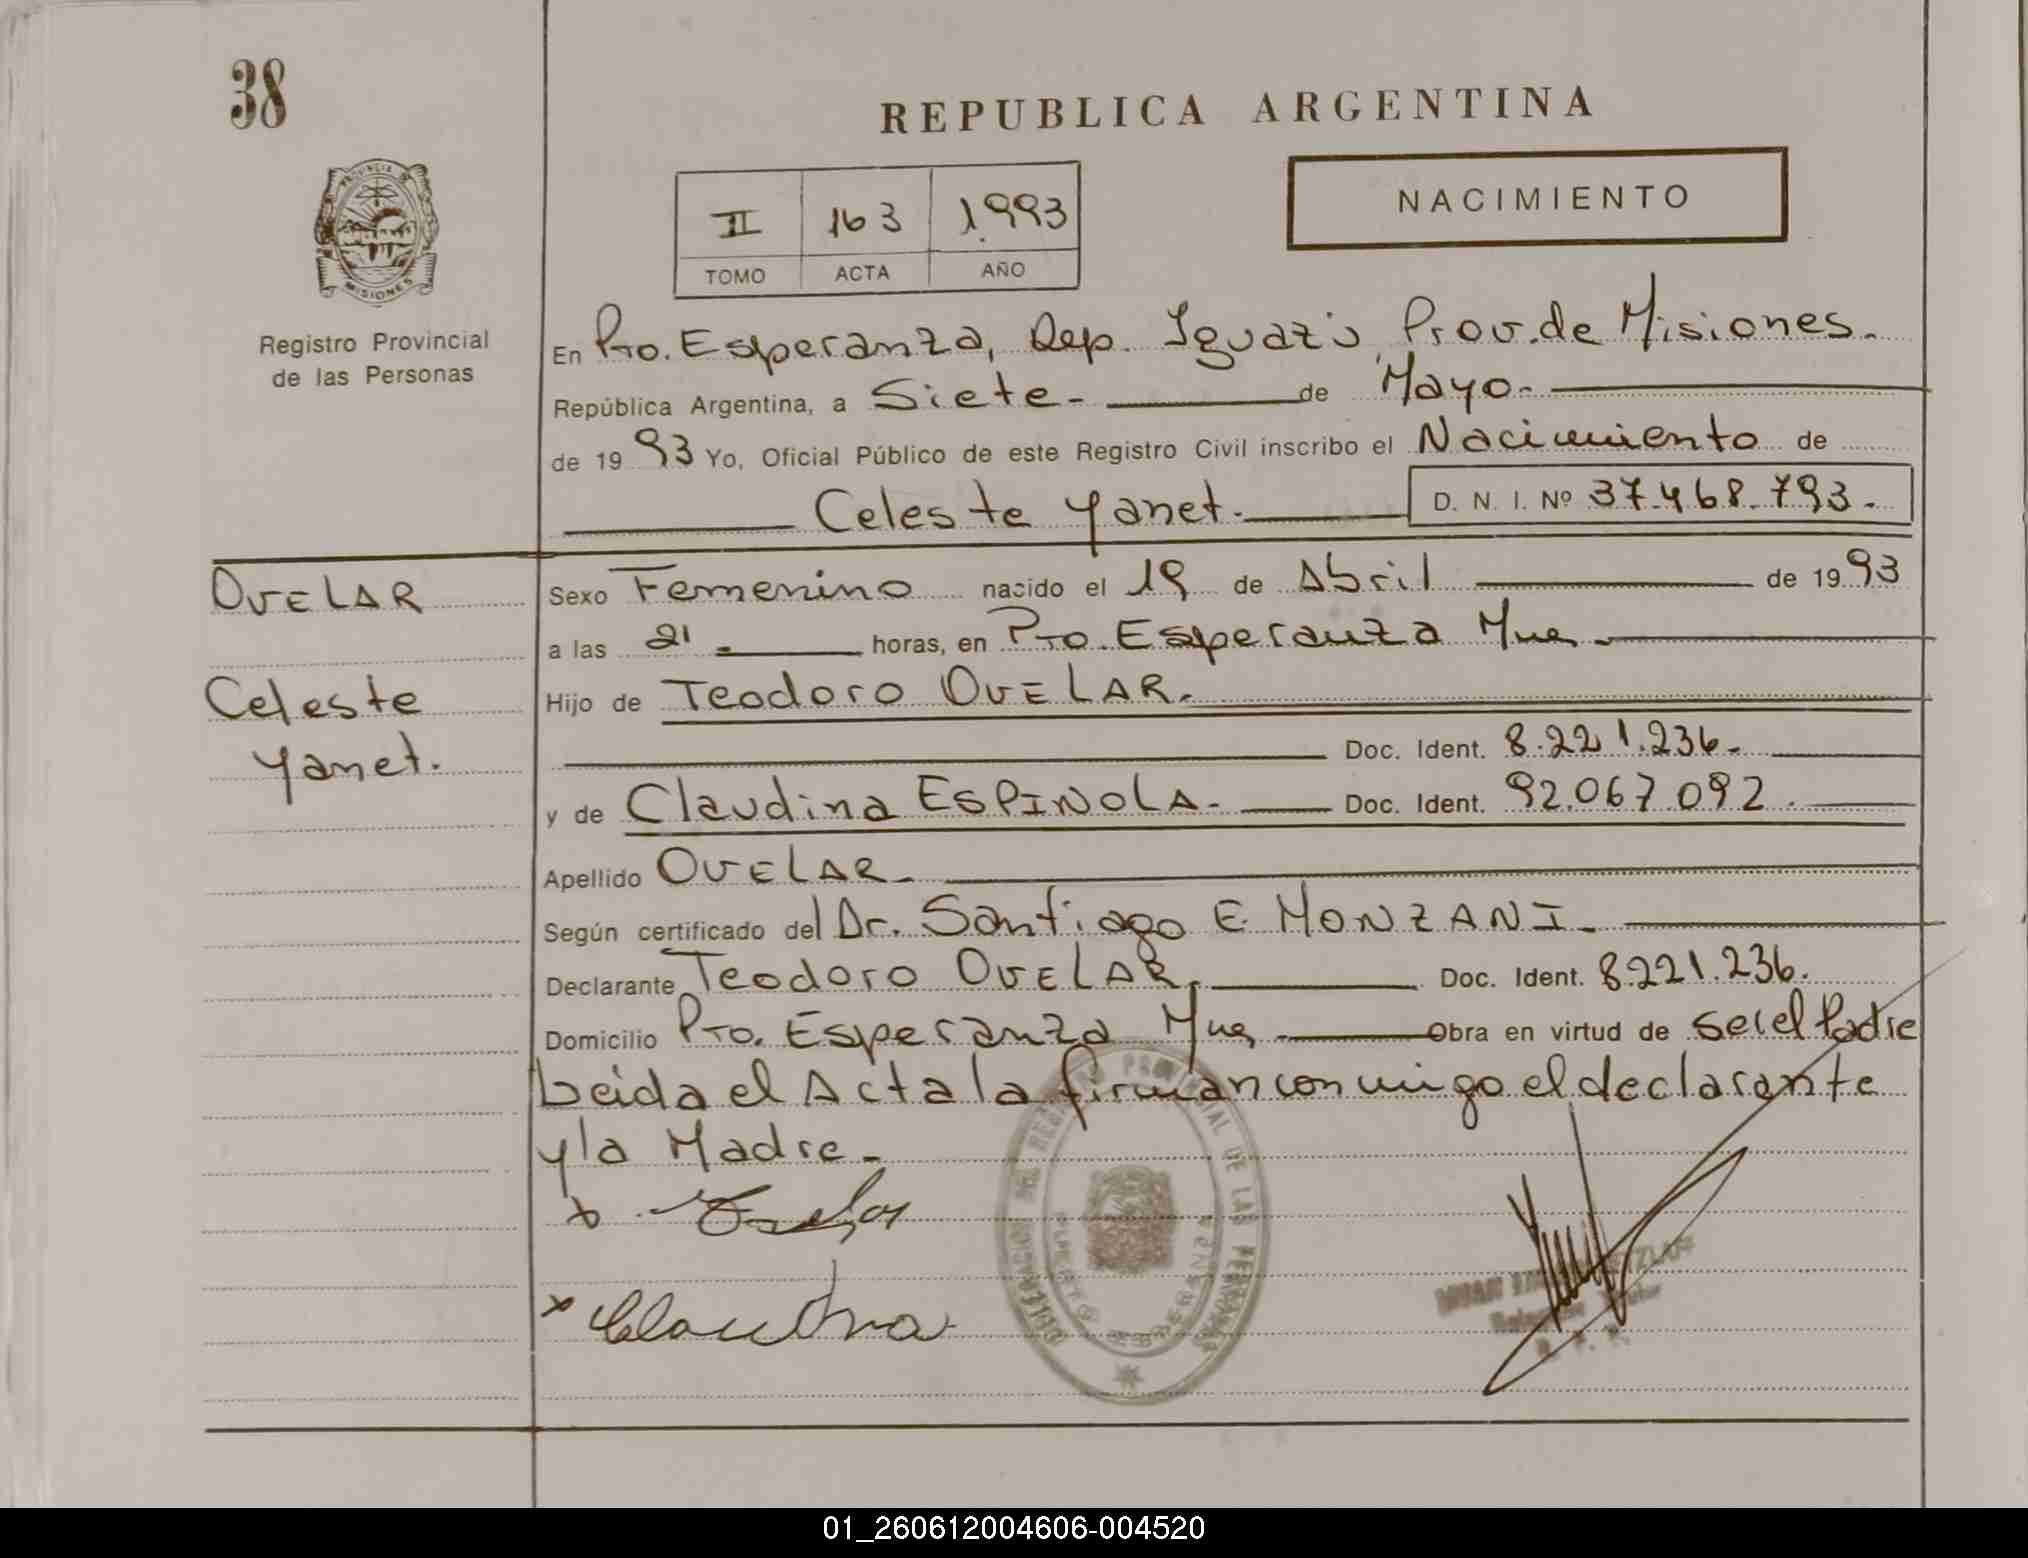 38
REPUBLICA ARGENTINA
NACIMIENTO
II 163 1.993
TOMO ACTA AÑO
PROVINCIA DE
MISIONES
Registro Provincial
de las Personas
En Pto. Esperanza, Dep. Iguazú, Prov. de Misiones.
República Argentina, a Siete- de Mayo-
de 19 93 Yo, Oficial Público de este Registro Civil inscribo el Nacimiento de
Celeste Yanet. D. N. I. Nº 37.468.793.-
OVELAR
Celeste
Yanet.
Sexo Femenino nacido el 19 de Abril de 19 93
a las 21 horas, en Pto. Esperanza Mnes.
Hijo de Teodoro OVELAR.
Doc. Ident. 8.221.236.
y de Claudina ESPINOLA- Doc. Ident. 92.067.092.
Apellido OVELAR-
Según certificado del Dr. Santiago E. MONZANI-
Declarante Teodoro OVELAR. Doc. Ident. 8.221.236.
Domicilio Pto. Esperanza Mnes. Obra en virtud de ser el Padre
Leida el Acta la firman conmigo el declarante
y la Madre-
x
x Claudina
01_260612004606-004520